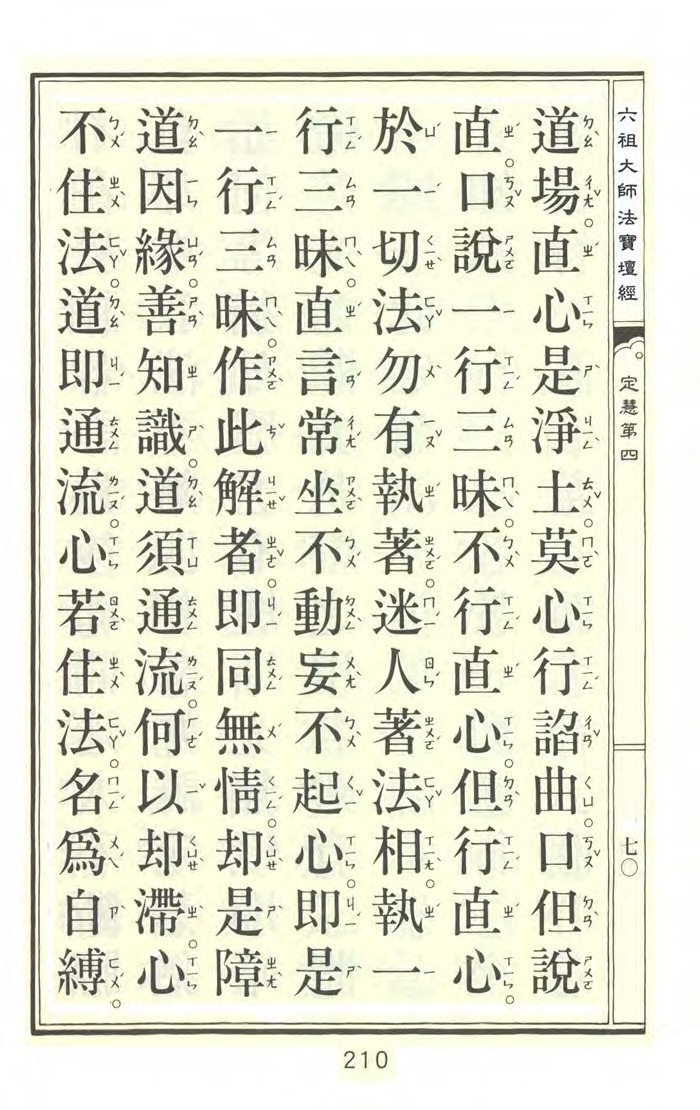 六祖大師法寶壇經
定慧第四
七〇
道場。直心是淨土。莫心行諂曲。口但說
直。口說一行三昧。不行直心。但行直心。
於一切法勿有執著。迷人著法相。執一
行三昧。直言常坐不動妄不起心。即是
一行三昧。作此解者。即同無情。却是障
道因緣。善知識。道須通流。何以却滯。心
不住法。道即通流。心若住法。名爲自縛。
210